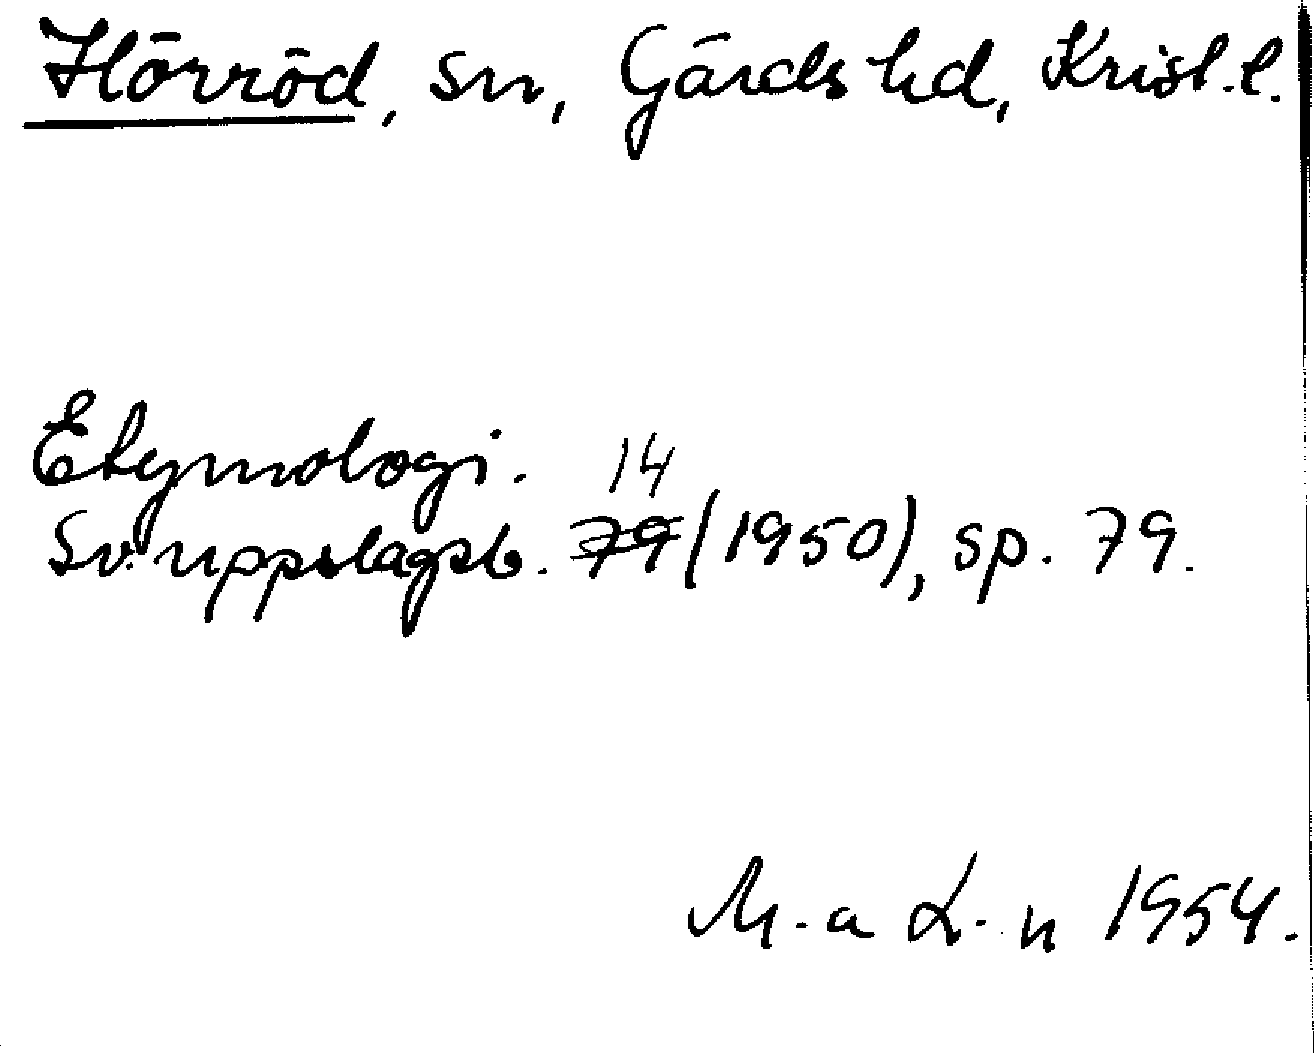 Hörröd, sn, Gärds hd, Krist.l.
Etymologi.
Sv. uppslagsb. 14 (1950), sp. 79.
M-a L-n 1954.